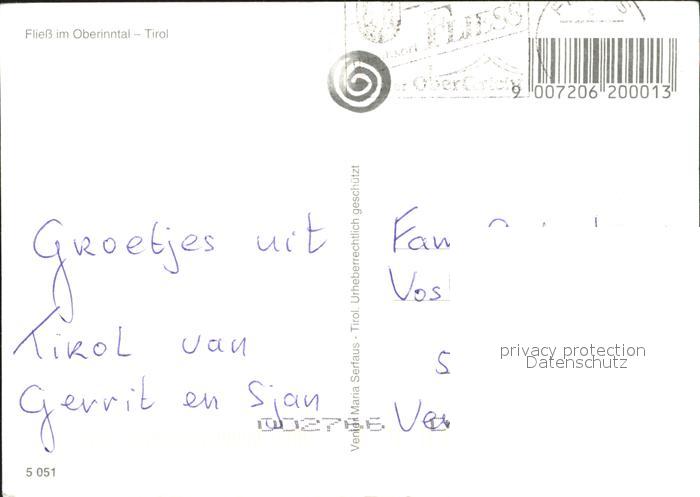 Fließ im Oberinntal – Tirol
FLIESS
9 007206 200013
Groetjes uit
Tirol van
Gerrit en Sjan
Fam
Vos
S
Ver
Maria Serfaus - Tirol. Urheberrechtlich geschützt
privacy protection
Datenschutz
5 051